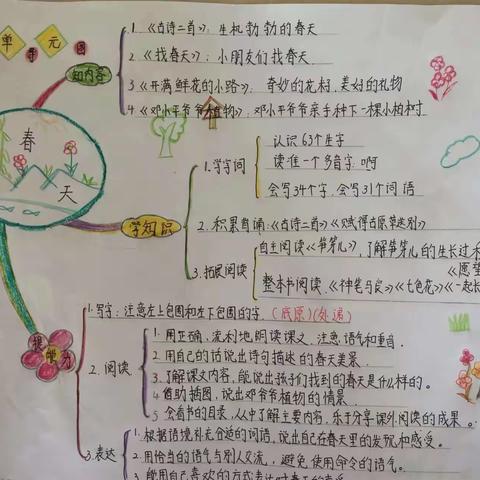 单元导图
知内容
1.《古诗二首》：生机勃勃的春天
2.《找春天》：小朋友们找春天
3.《开满鲜花的小路》：奇妙的花籽，美好的礼物
4.《邓小平爷爷植物》：邓小平爷爷亲手种下一棵小柏树
春天
学知识
1.学字词
认识63个生字
读准一个多音字：啊
会写34个字，会写31个词语
2.积累背诵：《古诗二首》《赋得古原草送别》
3.拓展阅读
自主阅读《笋芽儿》，了解笋芽儿的生长过
整本书阅读《神笔马良》《七色花》《一起长
《愿望
提能力
1.写字：注意左上包围和左下包围的字.(底原)(处递)
2.阅读
1.用正确、流利地朗读课文，注意语气和重音.
2.用自己的话说出诗句描述的春天美景.
3.了解课文内容，能说出孩子们找到的春天是什么样的.
4.借助插图，说出邓爷爷植物的情景.
5.会看书的目录，从中了解主要内容，乐于分享课外阅读的成果。
3.表达
1.根据语境补充合适的词语，说出自己在春天里的发现和感受。
2.用恰当的语气与别人交流，避免使用命令的语气。
3.能用自己喜欢的方式表达对春天的喜爱